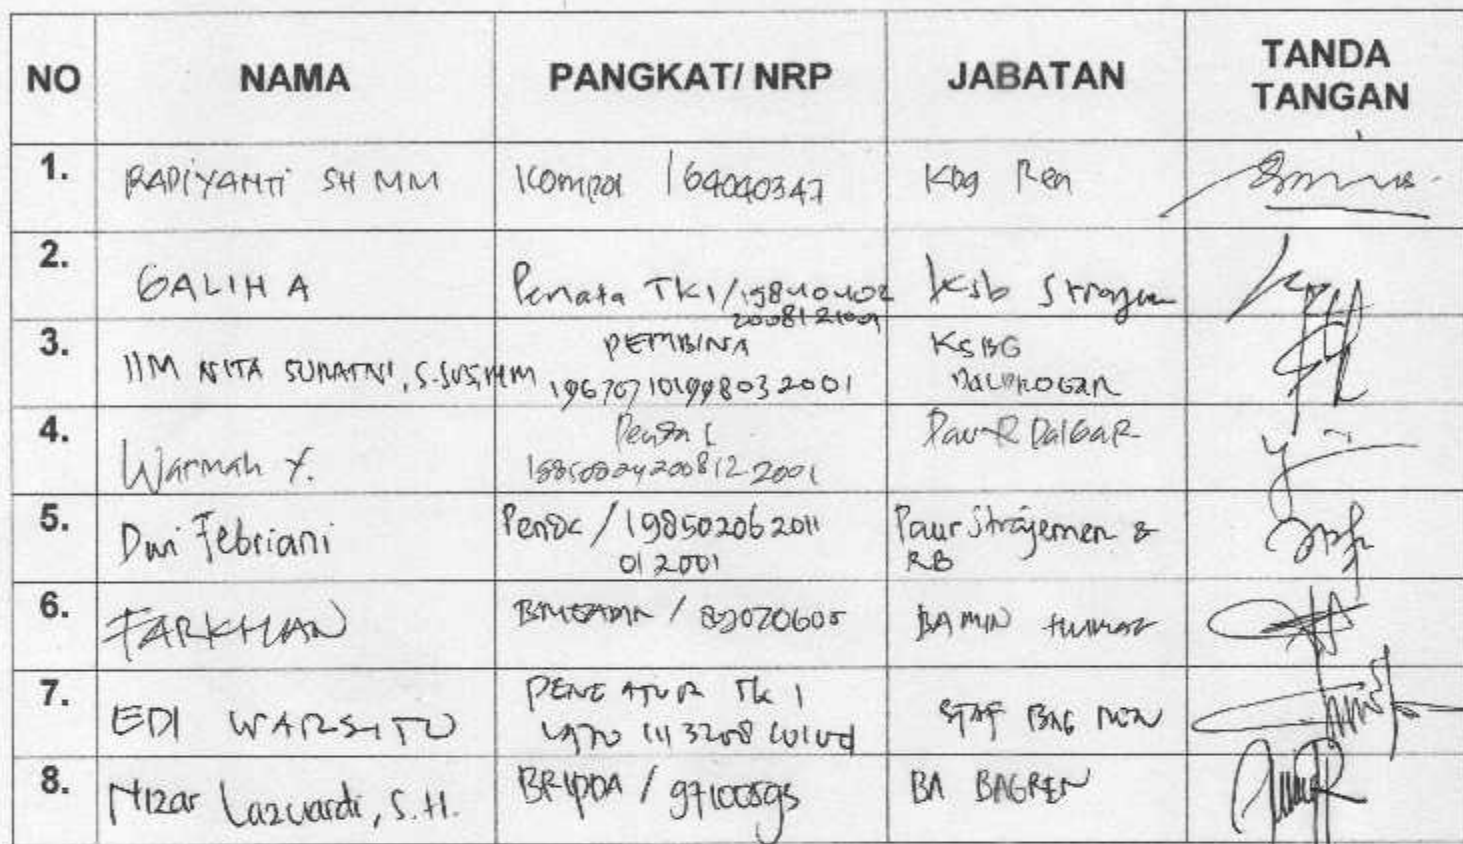 NO NAMA PANGKAT/ NRP JABATAN TANDA TANGAN
1. RADIYANTI SH MM Kompol / 64040347 Kbg Ren
2. GALIH A Penata TK I / 198404022008121001 Ksb Strajem
3. IIM NITA SURATNI, MM PEMBINA 196707101998032001 KSBG DALPROGAR
4. Warmah Y. Penda I 2008122001 Paur DalGaR
5. Dwi Febriani Penda / 198502062011012001 Paur Strajemen & RB
6. FARKHAN / 82070605 BAMIN
7. EDI WARSITO PENGATUR TK I STAF BAG REN
8. Nizar Lazuardi, S.H. BRIPDA / 97100595 BA BAGREN